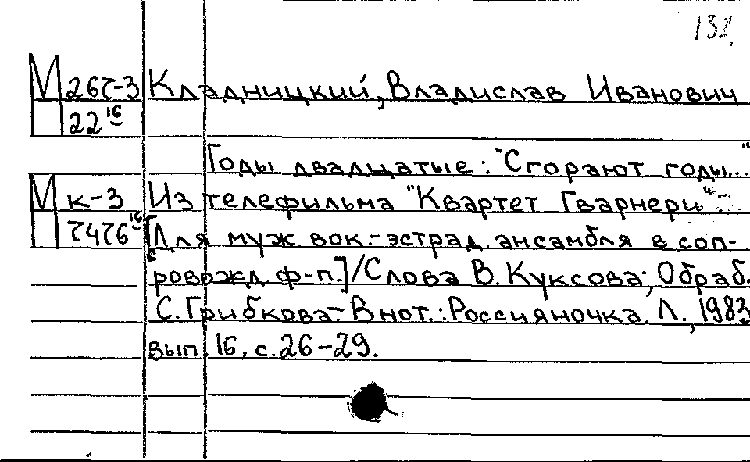 132
М 267-3 Кладницкий, Владислав Иванович
22 16
Годы двадцатые: "Сгорают годы..."
М к-3 Из телефильма "Квартет Гварнери".-
7476 16 [Для муж. вок.-эстрад. ансамбля в соп-
ровожд. ф-п.]/Слова В. Куксова; Обраб.
С. Грибкова- В нот.: Россияночка. Л., 1983
вып. 16, с. 26-29.